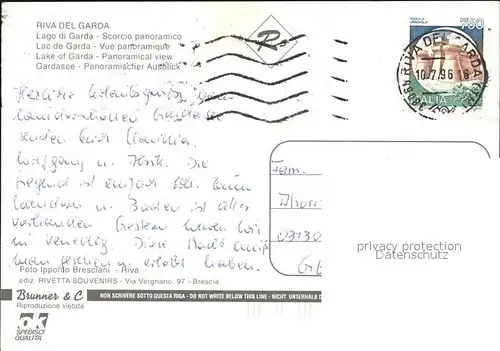 RIVA DEL GARDA
Lago di Garda - Scorcio panoramico
Lac de Garde - Vue panoramique
Lake of Garda - Panoramical view
Gardasee - Panoramischer Ausblick
Rs
750
RIVA DEL GARDA
10.7.96 16
ITALIA
Herzliche Urlaubsgrüße vom
wunderschönen Gardasee
senden Euch Claudia,
Wolfgang u. Die
Gegend ist einfach toll. Zum
u. Baden ist alles
vorhanden. Gestern waren wir
in Venedig. Diese Stadt muß
man gesehen u. erlebt haben.
Fam.
privacy protection
Datenschutz
Foto Ippolito Bresciani - Riva
ediz. RIVETTA SOUVENIRS - Via Vergnano, 97 - Brescia
Brunner & C
NON SCRIVERE SOTTO QUESTA RIGA - DO NOT WRITE BELOW THIS LINE - NICHT UNTERHALB D
Riproduzione vietata
ok
SPEDISCI
QUALITA'